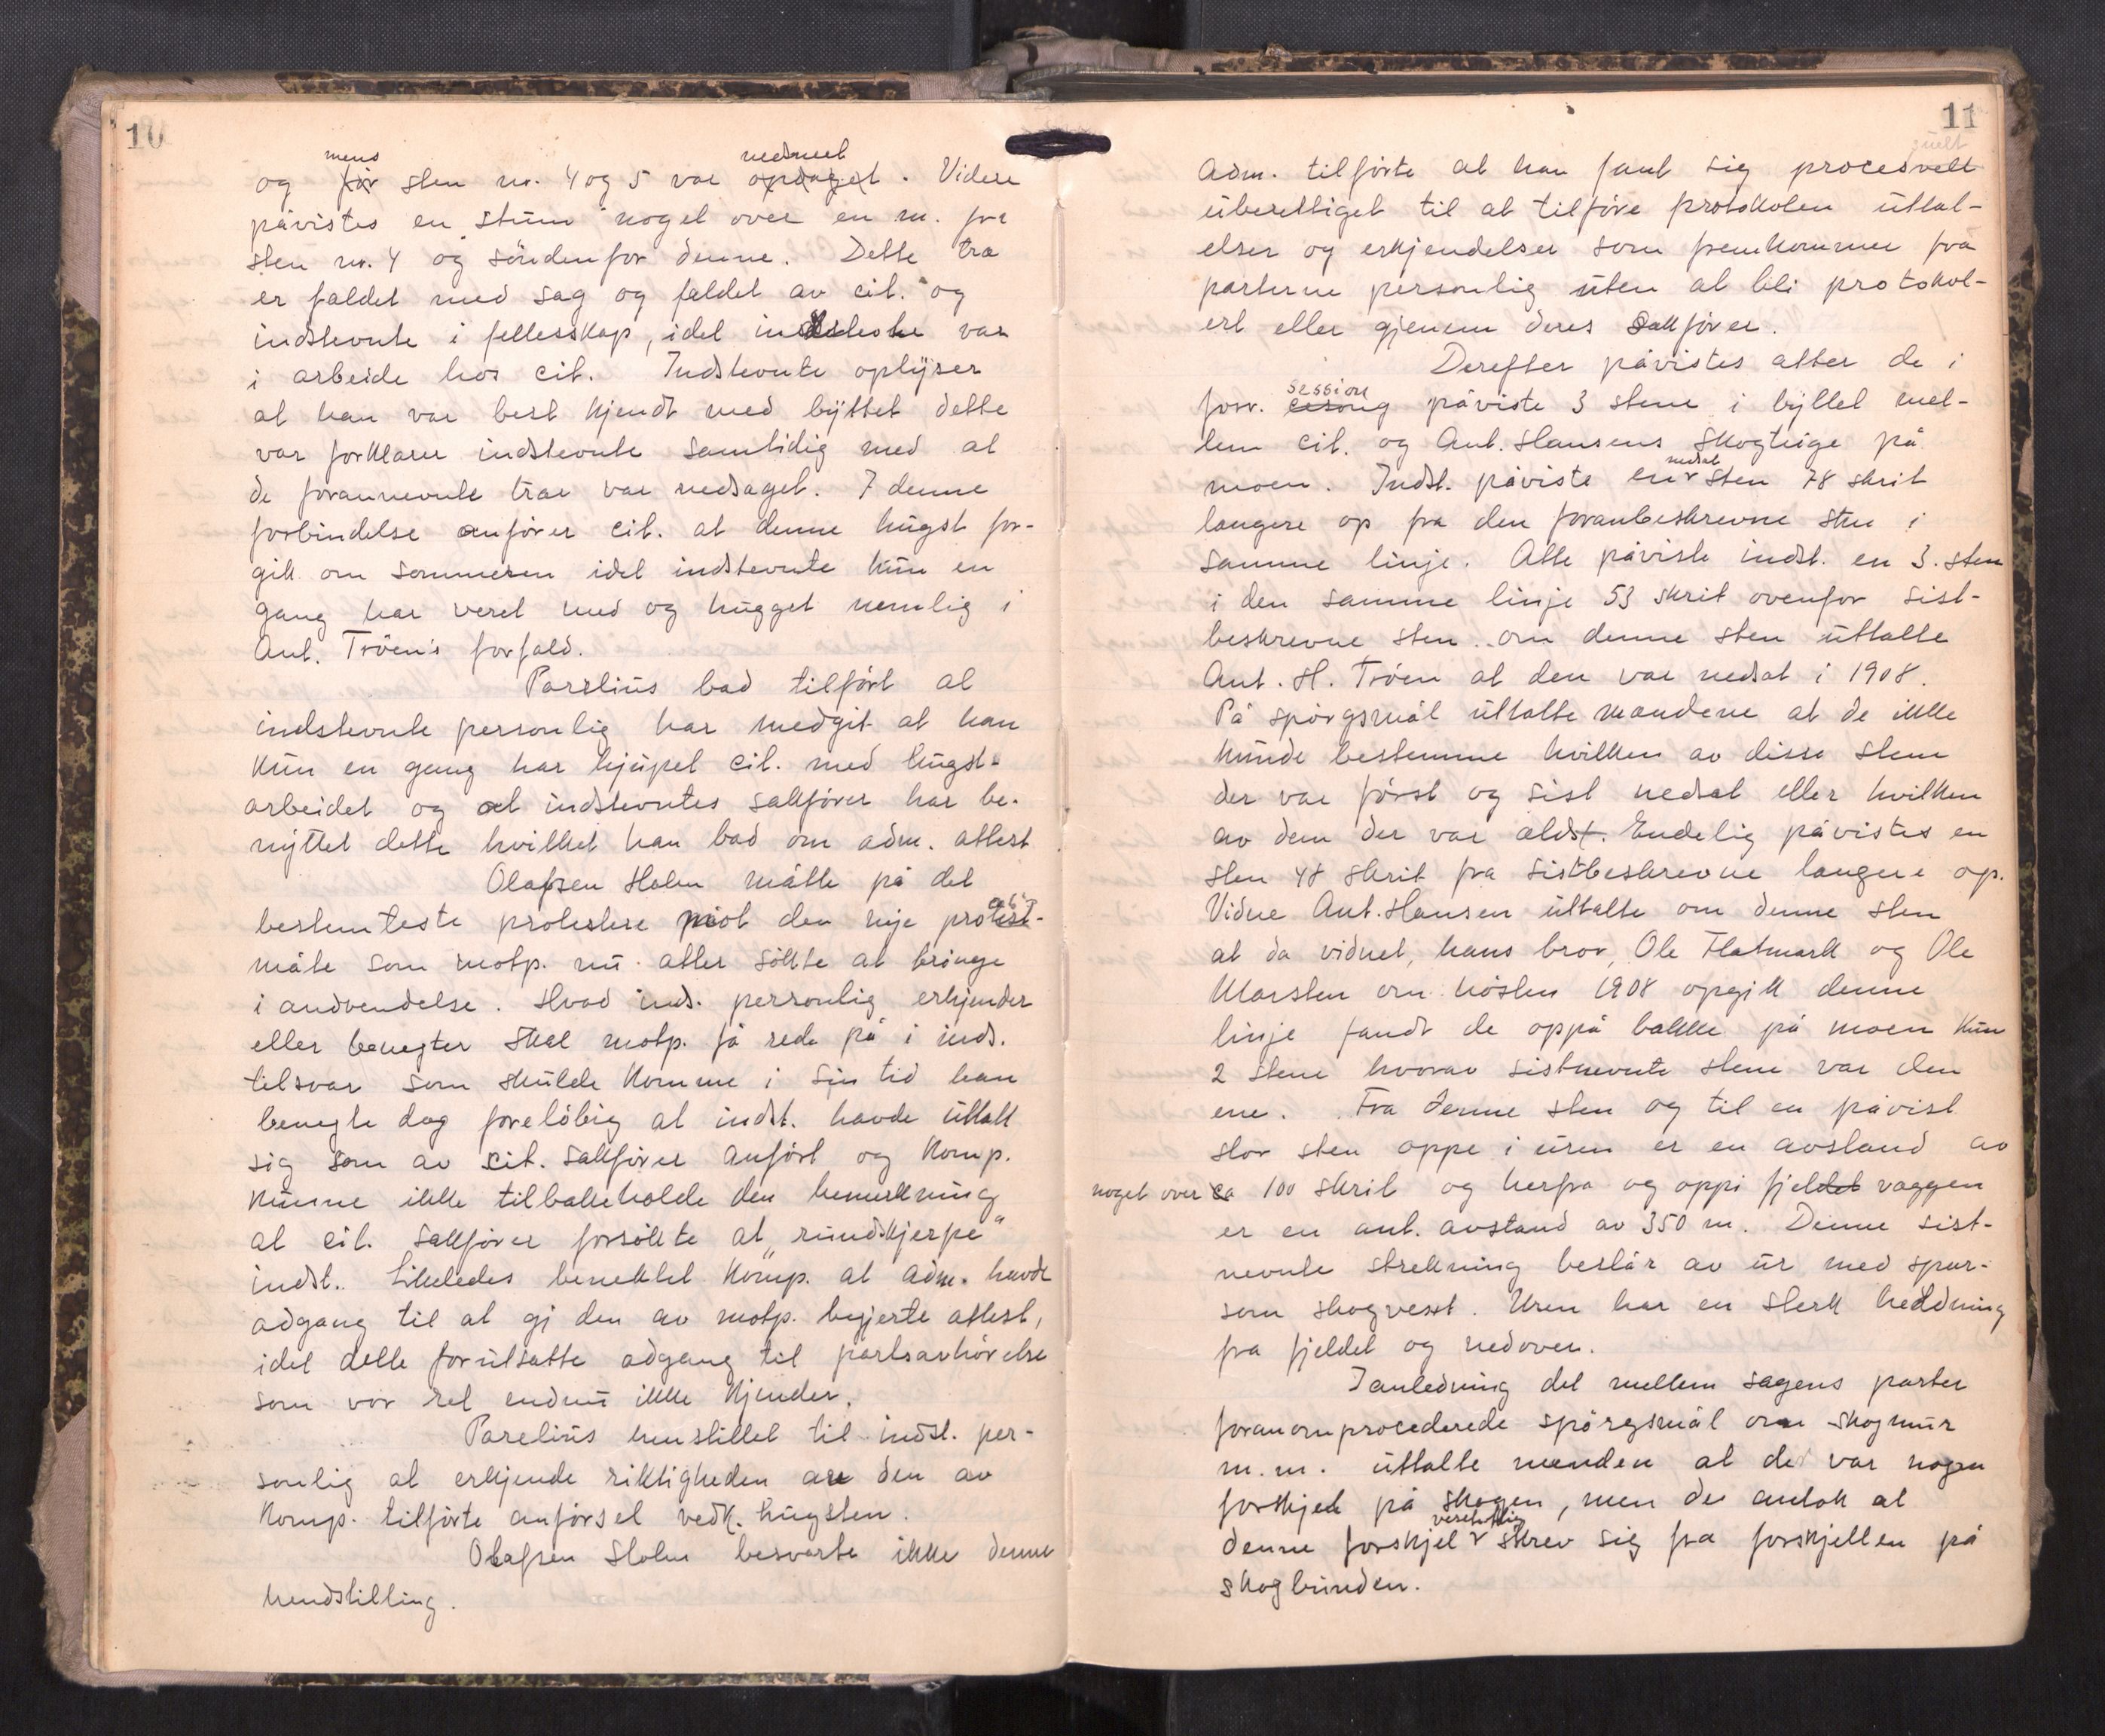 10
mens nedmeet
og før sten nr. 4 og 5 var opdaget. Videre
påvistes en stum noget over en m. fra
sten nr. 4 og søndenfor denne. Dette tra
er faldet med sag og faldet av cit. og
indstevnte i fellesskap, idet indstevnte var
i arbeide hos cit. Indstevnte oplyser
at han var best kjendt med byttet dette
var forklarer indstevnte samtidig med at
de forannevnte trær var nedsaget. I denne
forbindelse anfører cit. at denne hugst for-
gik om sommeren idet indstevnte kun en
gang har veret med og hugget nemlig i
Ant. Trøen's forfald.
Parelius bad tilført at
indstevnte personlig har medgit at han
kun en gang har hjulpet cit. med hugst-
arbeidet og at indstevntes sakfører har be-
nyttet dette hvilket han bad om adm. attest
Olafsen Holm måtte på det
bestemteste protestere mot den nye protest-
måte som motp. nu atter søkte at bringe
i andvendelse. Hvad ind. personlig erkjender
eller benegter skal motp. få rede på i inds.
tilsvar som skulde komme i sin tid han
benegte dog foreløbig at indst. havde uttalt
sig som av cit. sakfører anført og komp.
kunne ikke tilbakeholde den bemerkning
at cit. sakfører forsøkte at "rundskjerpe"
indst. Likeledes benektet komp. at adm. havde
adgang til at gi den av motp. begjerte attest,
idet dette forutsatte adgang til partsavhørelse
som vor ret endnu ikke kjender.
Parelius henstillet til indst. per-
sonlig at erkjende riktigheden av den av
komp. tilførte anførsel vedk. hugsten.
Olafsen Holm besvarte ikke denne
hendstilling.
11
Adm. tilførte at han fant sig procesuelt
uberettiget til at tilføre protokolen uttal-
elser og erkjendelser som fremkommer fra
parterne personlig uten at bli protokol-
ert eller gjenem deres sakfører.
Derefter påvistes atter de i
session
forr. cesong påviste 3 stene i byttet mel-
lem cit. og Ant. Hansens skogteige på
nedsat
moen. Indst. påviste en sten 78 skrit
langere op fra den foranbeskrevne sten i
samme linje. Atte påviste indst. en 3. sten
i den samme linje 53 skrit ovenfor sist-
beskrevne sten.. om denne sten uttalte
Ant. H. Trøen at den var nedsat i 1908.
På spørgsmål uttalte mændene at de ikke
kunde bestemme hvilken av disse stene
der var først og sist nedsat eller hvilken
av dem der var ældst. Endelig påvistes en
sten 48 skrit fra sistbeskrevne langere op.
Vidne Ant. Hansen uttalte om denne sten
at da vidnet, hans bror, Ole Flatmark og Ole
Marsten om høsten 1908 opgik denne
linje fandt de oppå bakke på moen kun
2 stene hvorav sistnevnte stene var den
ene. Fra denne sten og til en påvist
stor sten oppe i uren er en avstand av
noget over ca 100 skrit og herfra og oppi fjeldet vaggen
er en ant. avstand av 350 m. Denne sist-
nevnte strekning består av ur med spar-
som skogvext. Uren har en sterk heldning
fra fjeldet og nedover.
I anledning det mellem sagens parter
foranomprocederede spørgsmål om skogmur
m.m. uttalte menden at der var nogen
forskjel på skogen, men de antok at
denne forskjel skrev sig fra forskjellen på
skogbunden.